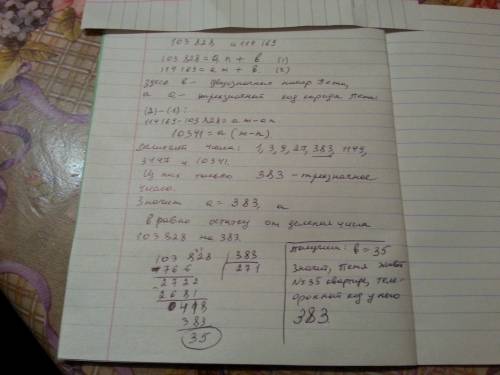 103 828 и 114 169
103 828 = а n + в (1)
114 169 = а м + в (2)
Здесь в - двузначный номер Пети,
а а - трехзначный код города Пети
(2) - (1):
114169 - 103828 = ам - an
10341 = а (м - n)
числа: 1, 3, 9, 27, 383, 1149,
3447 и 10341.
Из них только 383 - трехзначное
число.
Значит а = 383, а
в равно остатку от деления числа
103 828 на 383.
103 828 | 383
766 | 271
2722
2681
0418
383
35
Получим: в = 35
Значит, Петя живет
№35 квартире, теле-
фонный код у него
383